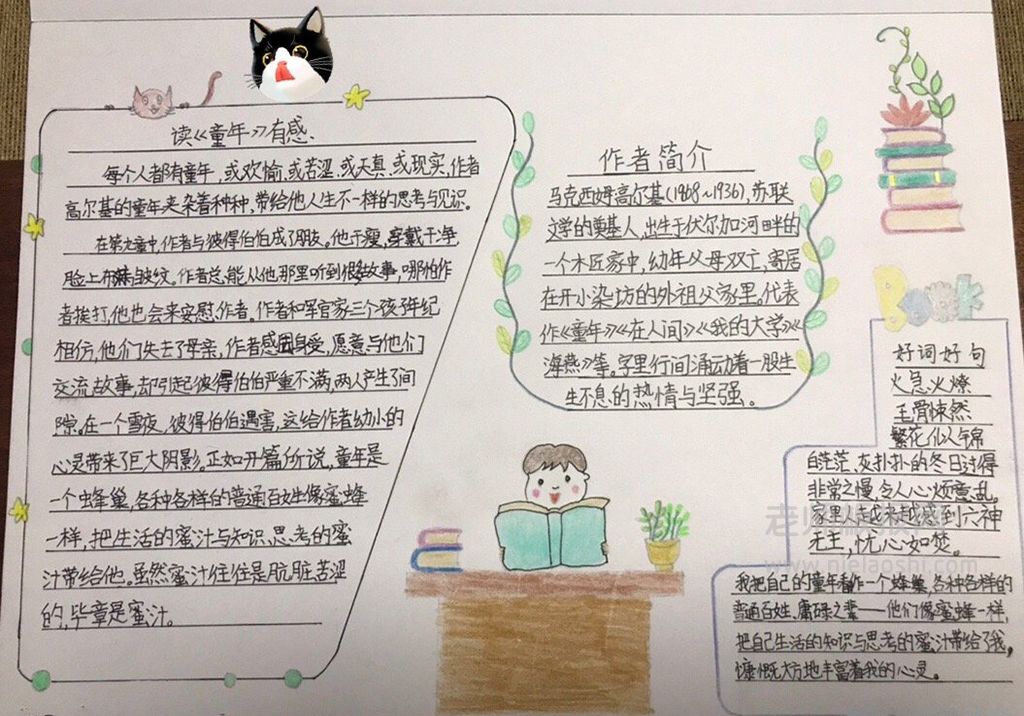 读《童年》有感.
每个人都有童年,或欢愉,或苦涩,或天真,或现实,作者
高尔基的童年夹杂着种种,带给他人生不一样的思考与见识。
在第七章中,作者与彼得伯伯成了朋友。他干瘦,穿戴干净,
脸上布满皱纹。作者总能从他那里听到很多故事,哪怕作
者挨打,他也会来安慰作者。作者和军官家三个孩子年纪
相仿,他们失去了母亲,作者感同身受,愿意与他们
交流故事,却引起彼得伯伯严重不满,两人产生了间
隙。在一个雪夜,彼得伯伯遇害,这给作者幼小的
心灵带来了巨大阴影。正如开篇所说,童年是
一个蜂巢,各种各样的普通百姓像蜜蜂
一样,把生活的蜜汁与知识、思考的蜜
汁带给他。虽然蜜汁往往是肮脏苦涩
的,毕竟是蜜汁。
作者简介
马克西姆高尔基(1968~1936),苏联
文学的奠基人,出生于伏尔加河畔的
一个木匠家中,幼年父母双亡,寄居
在开小染坊的外祖父家里。代表
作《童年》《在人间》《我的大学》《
海燕》等。字里行间涌动着一股生
生不息的热情与坚强。
Book
好词好句
火急火燎
毛骨悚然
繁花似锦
白茫茫、灰扑扑的冬日过得
非常之慢,令人心烦意乱。
家里人越来越感到六神
无主,忧心如焚。
我把自己的童年看作一个蜂巢,各种各样的
普通百姓、庸碌之辈——他们像蜜蜂一样,
把自己生活的知识与思考的蜜汁带给了我,
慷慨大方地丰富着我的心灵。